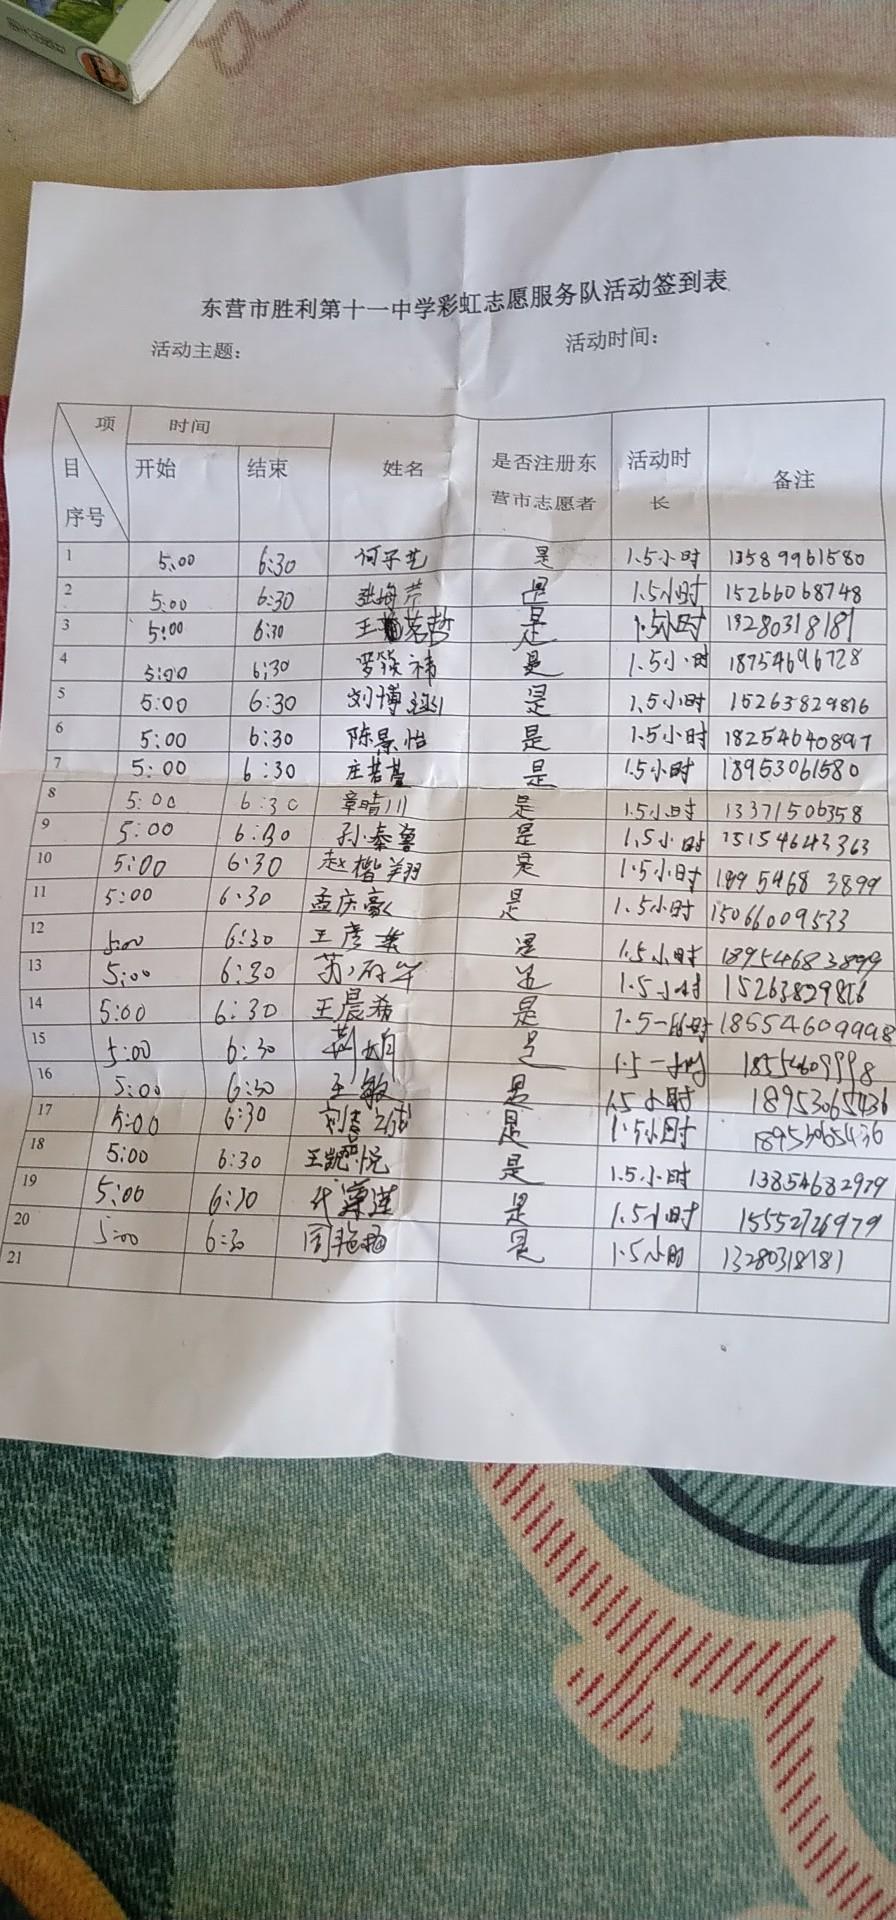 东营市胜利第十一中学彩虹志愿服务队活动签到表
活动主题: 活动时间:
项 目 序号 时间 开始 结束 姓名 是否注册东营市志愿者 活动时长 备注
1 5:00 6:30 何子艺 是 1.5小时 13589961580
2 5:00 6:30 张梅芹 是 1.5小时 15266068748
3 5:00 6:30 王茗哲 是 1.5小时 13280318181
4 5:00 6:30 是 1.5小时 18754696728
5 5:00 6:30 刘博 是 1.5小时 15263829816
6 5:00 6:30 陈景怡 是 1.5小时 18254640897
7 5:00 6:30 庄若萱 是 1.5小时 18953061580
8 5:00 6:30 章晴川 是 1.5小时 13371506358
9 5:00 6:30 孙秦鲁 是 1.5小时 15154643363
10 5:00 6:30 赵楷翔 是 1.5小时 18954683899
11 5:00 6:30 孟庆豪 是 1.5小时 15066009533
12 5:00 6:30 王彦 是 1.5小时 18954683899
13 5:00 6:30 是 1.5小时 15263829816
14 5:00 6:30 王晨希 是 1.5小时 18554609998
15 5:00 6:30 荆 是 1.5小时 18554609998
16 5:00 6:30 王敏 是 1.5小时 18953065436
17 5:00 6:30 是 1.5小时 18953065436
18 5:00 6:30 王凯悦 是 1.5小时 13854682979
19 5:00 6:30 是 1.5小时 15552726979
20 5:00 6:30 是 1.5小时 13280318181
21